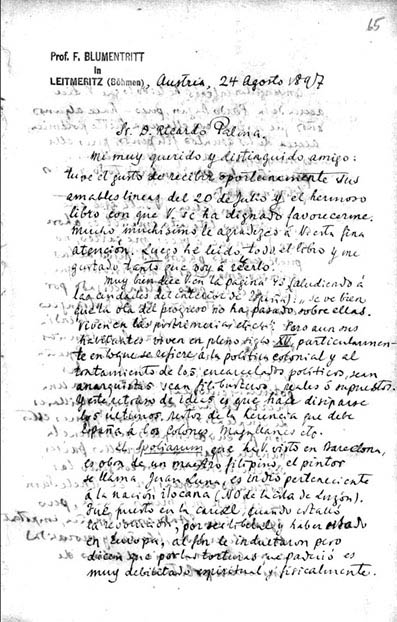 65
Prof. F. BLUMENTRITT
in
LEITMERITZ (Böhmen), Austria, 24 Agosto 1897
Sr. D. Ricardo Palma.
Mi muy querido y distinguido amigo:
tuve el gusto de recibir oportunamente sus
amables lineas del 20 de Julio y el hermoso
libro con que V. se ha dignado favorecerme.
Mucho muchísimo le agradezco á V. esta fina
atención. Luego he leido todo el libro y me
gustado tanto que voy á
Muy bien dice V. en la página 43 (aludiendo á
las ciudades del interior de España): "se ve bien
que la ola del progreso no ha pasado sobre ellas.
Viven en las postrimerías etc." Pero aun sus
habitantes viven en pleno siglo XV, particularmen-
te en lo que se refiere á la política colonial y al
tratamiento de los encarcelados políticos, sean
anarquistas sean filibusteros, reales ó supuestos.
Y este retraso de ideas es que hace disiparse
los últimos restos de la herencia que debe
España á los Colones, Magallanes etc.
El Spoliarium que ha V. visto en Barcelona,
es obra de un maestro filipino, el pintor
se llama Juan Luna, es indio perteneciente
á la nación ilocana (NO de la isla de Luzón).
Fué puesto en la carcel, cuando estalló
la revolución, por ser y haber estado
en Europa, al fin le indultaron pero
dicen que por las torturas que padeció es
muy debilitado espiritual y fisicalmente.